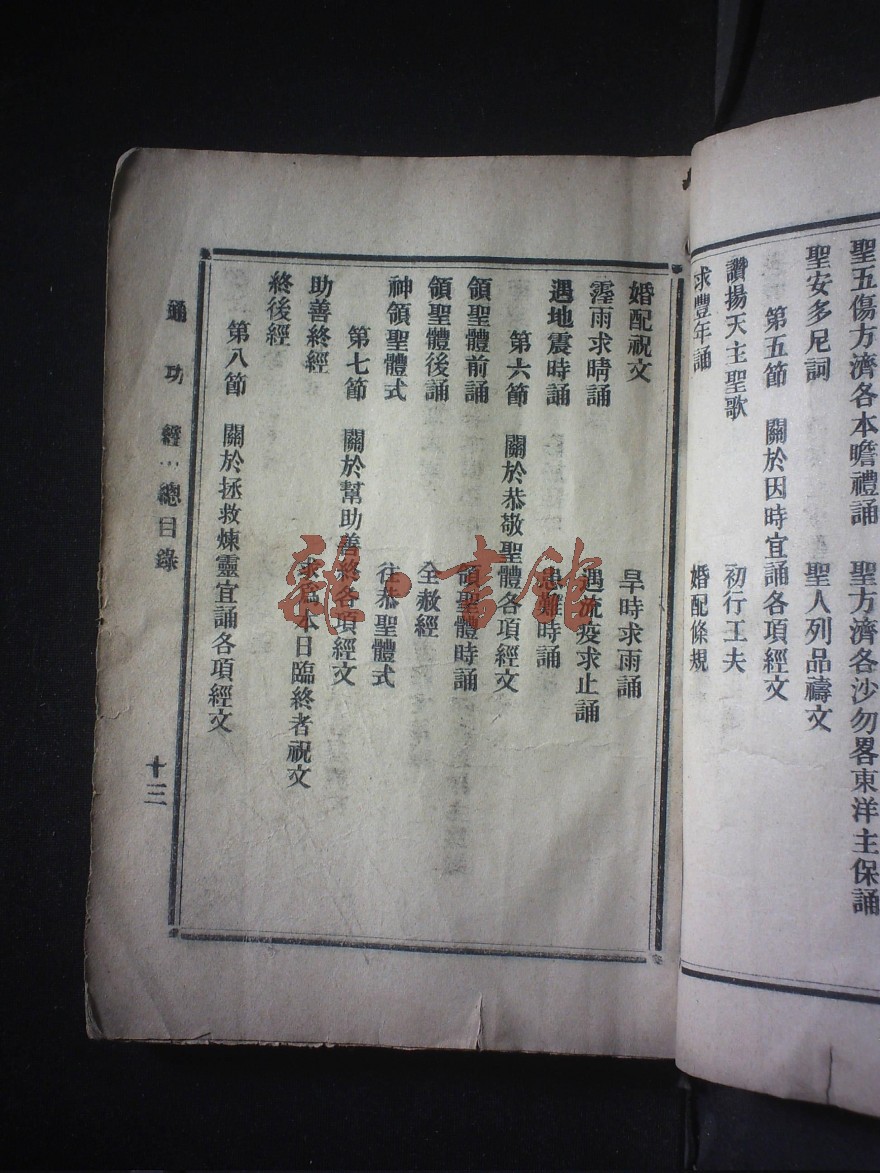 聖五傷方濟各本瞻禮誦　聖方濟各沙勿畧東洋主保誦
聖安多尼詞　聖人列品禱文
第五節　關於因時宜誦各項經文
讚揚天主聖歌　初行工夫
求豐年誦　婚配條規
婚配祝文　旱時求雨誦
霪雨求晴誦　遇流疫求止誦
遇地震時誦　患難時誦
第六節　關於恭敬聖體各項經文
領聖體前誦　領聖體時誦
領聖體後誦　全赦經
神領聖體式　往恭聖體式
第七節　關於幫助善終各項經文
助善終經　求為本日臨終者祝文
終後經
第八節　關於拯救煉靈宜誦各項經文
通功經…總目錄　十三
雜·書館